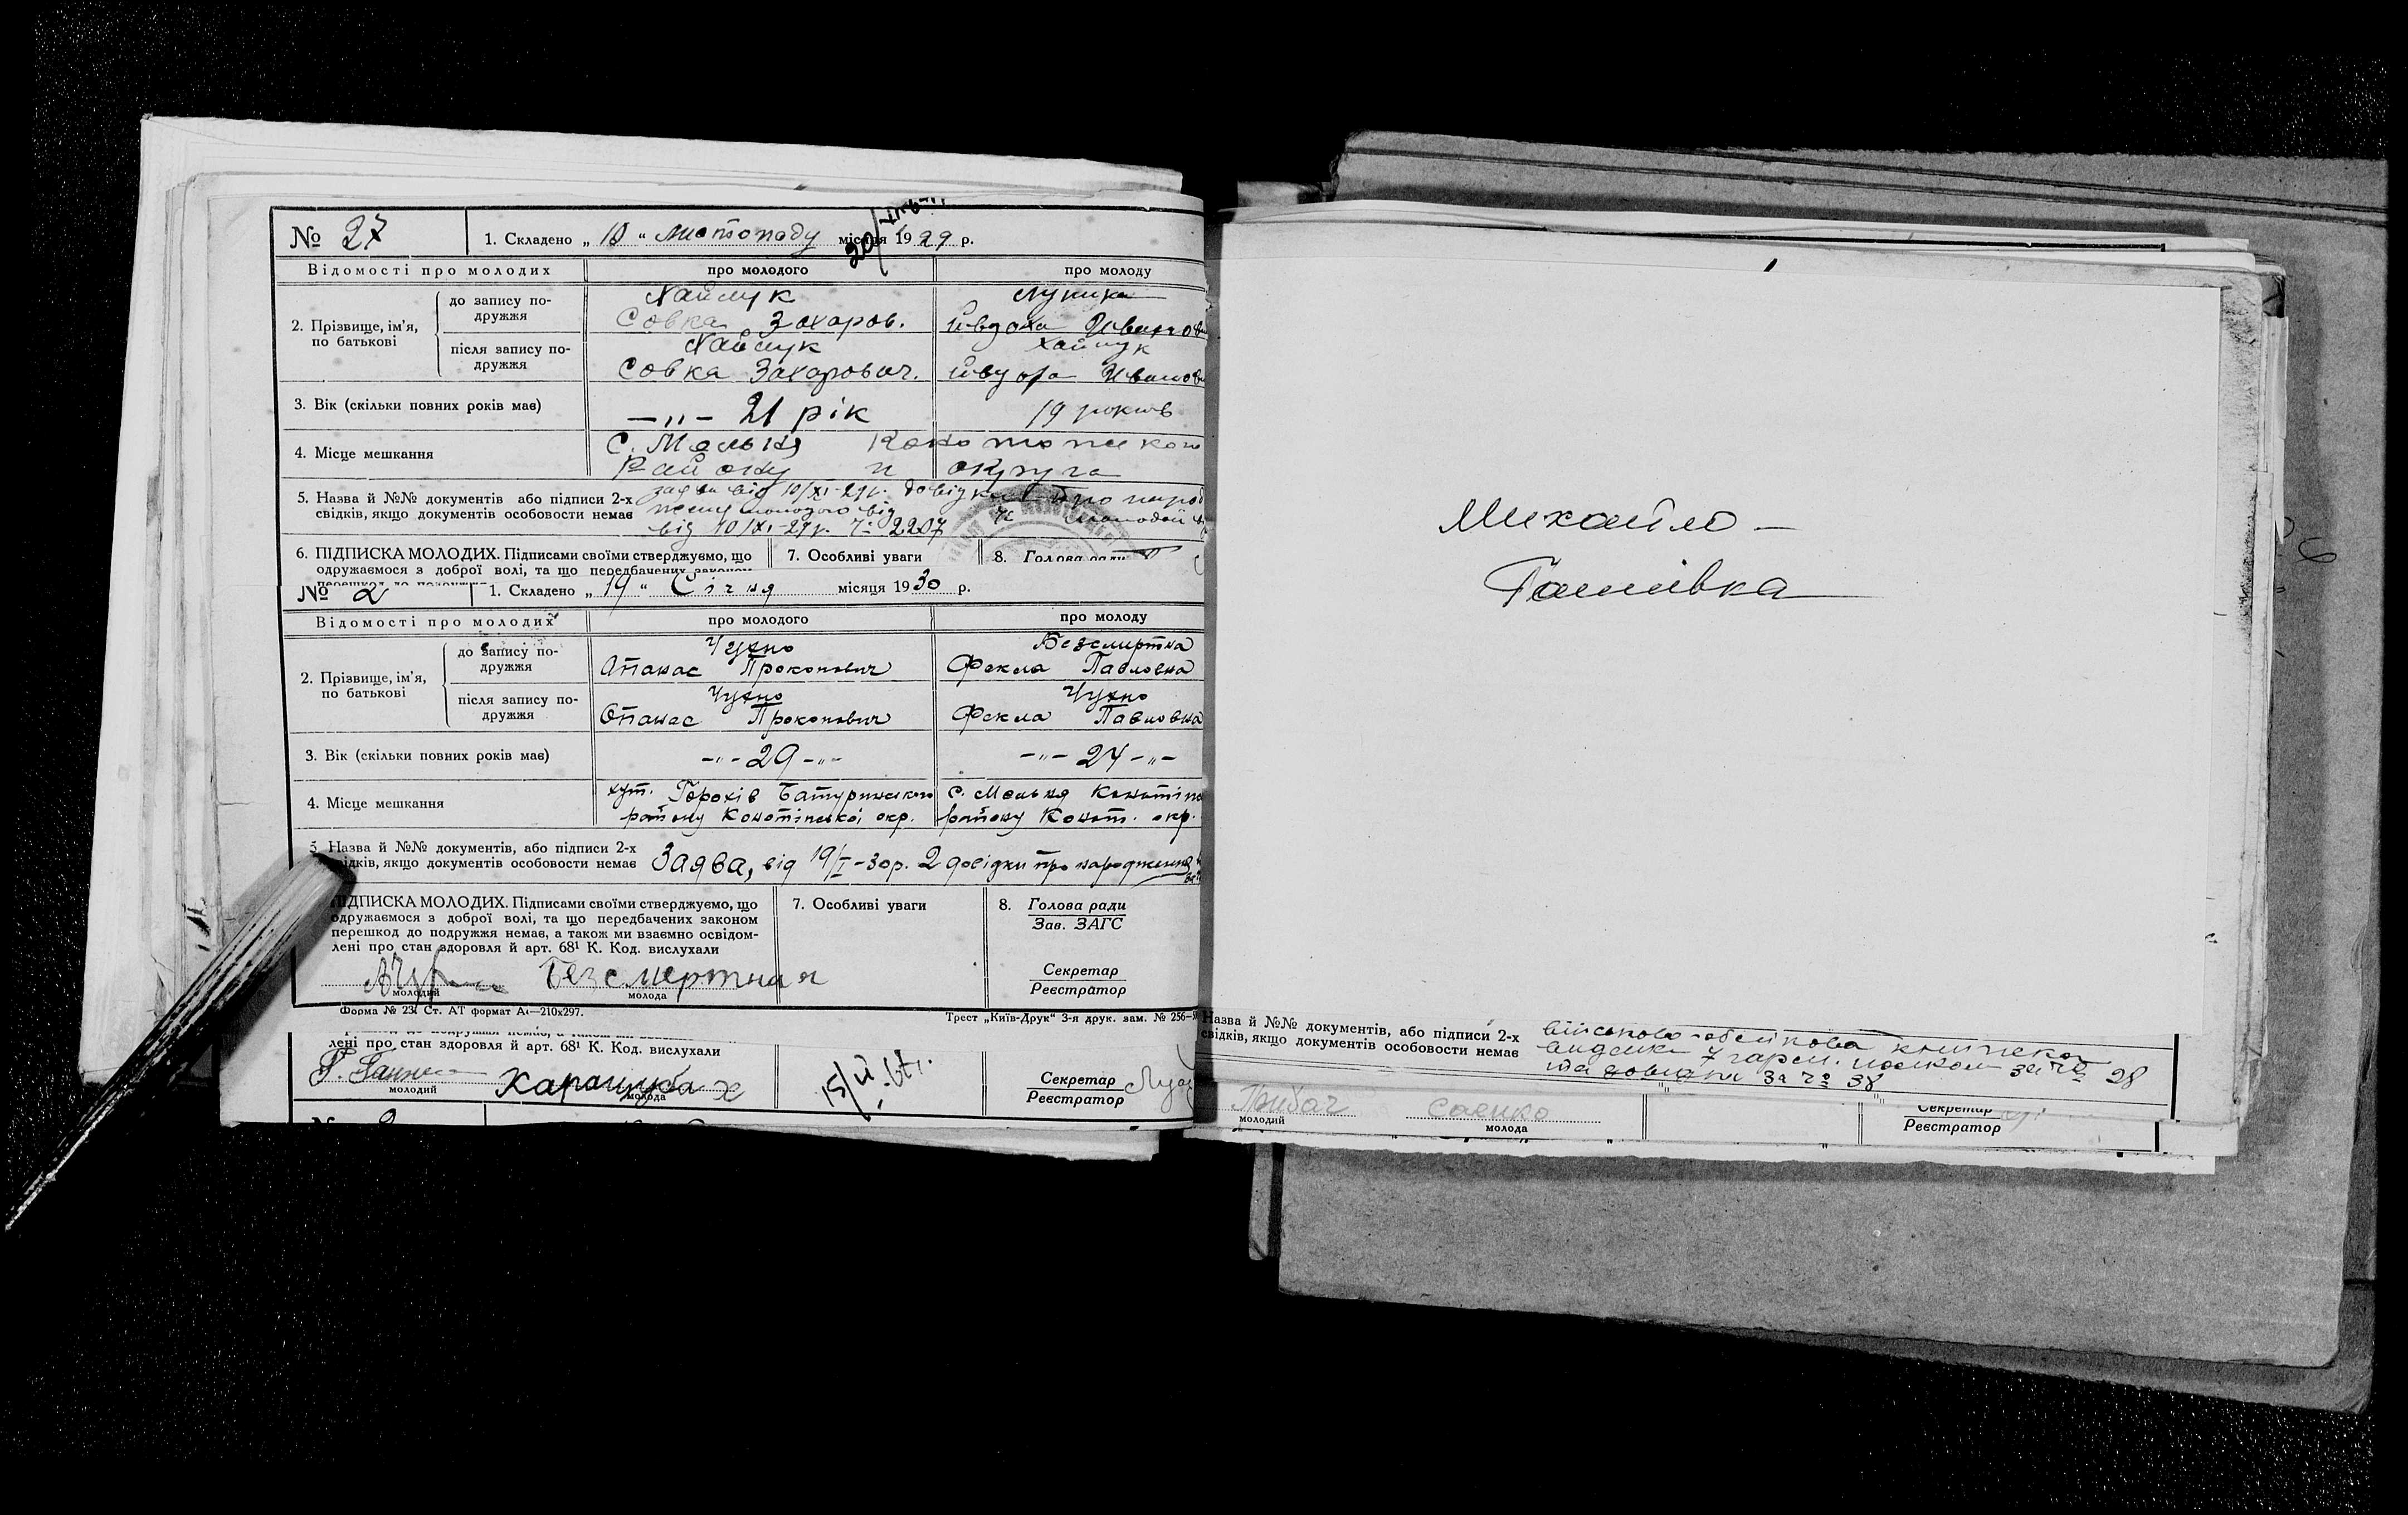 № 27 1. Складено „ 10 “ листопаду місяця 1929 р.
Відомості про молодих про молодого про молоду
2. Прізвище, ім'я, по батькові
до запису по-
дружжя
Хаймук
Совка Захаров.
після запису по-
дружжя
Хаймук Хаймук
Совка Захарович.
3. Вік (скільки повних років має) —„— 21 рік 19 років
4. Місце мешкання
С. Мельня
Району и округа
5. Назва й №№ документів або підписи 2-х
свідків, якщо документів особовости немає
від 10/XI-29р. № 2207
6. ПІДПИСКА МОЛОДИХ. Підписами своїми стверджуємо, що
одружаємося з доброї волі, та що передбачених законом
7. Особливі уваги
8. Голова ради
№ 2 1. Складено „ 19 “ Січня місяця 1930 р.
Відомості про молодих про молодого про молоду
2. Прізвище, ім'я, по батькові
до запису по-
дружжя
Чухно Безсмертна
Опанас Прокопович Фекла Павловна
після запису по-
дружжя
Чухно Чухно
Опанас Прокопович Фекла Павловна
3. Вік (скільки повних років має) -„- 29 -„- -„- 24 -„-
4. Місце мешкання
хут. Горохів Батуринського с. Мельня
району Конотіпської окр. району Конот. окр.
5. Назва й №№ документів, або підписи 2-х
свідків, якщо документів особовости немає
Заява, від 19/I-30р. 2 довідки про народження
ПІДПИСКА МОЛОДИХ. Підписами своїми стверджуємо, що
одружаємося з доброї волі, та що передбачених законом
перешкод до подружжя немає, а також ми взаємно освідом-
лені про стан здоровля й арт. 68¹ К. Код. вислухали
7. Особливі уваги
8. Голова ради
Зав. ЗАГС
Секретар
Реєстратор
Безсмертная
молодий молода
Форма № 23. Ст. АТ формат А₄—210x297.
Трест „Київ-Друк“ 3-я друк. зам. № 256—
лені про стан здоровля й арт. 68¹ К. Код. вислухали
Карацуба
молодий молода
Секретар
Реєстратор
Михайло —
Ганнівка
Назва й №№ документів, або підписи 2-х
свідків, якщо документів особовости немає
військово-облікова
за № 28
та довідка за № 38
Грибач Саенко
молодий молода
Секретар
Реєстратор